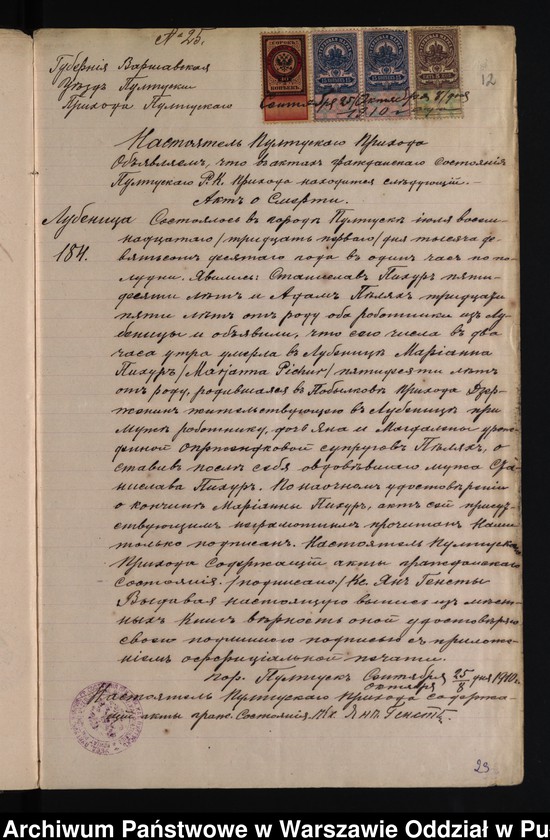 № 25.
12
Губернія Варшавская
Уѣздъ Пултускій
Прихода Пултускаго
Сентября 25/Октября 8/дня
1910 года
Настоятель Пултускаго Прихода
Объявляетъ, что въ актахъ гражданскаго состоянія
Пултускаго Р. К. Прихода находится слѣдующій. —
Актъ о Смерти.
Лубеница
184.
Состоялось въ городѣ Пултускѣ іюля восем-
надцатаго /тридцать перваго/ дня тысяча де-
вятьсотъ десятаго года въ одинъ часъ по по-
лудни. Явились: Станиславъ Пихуръ пяти-
десяти лѣтъ и Адамъ Пѣляхъ тридцати
пяти лѣтъ отъ роду оба работники изъ Лу-
беницы и объявили, что сего числа въ два
часа утра умерла въ Лубеницѣ Маріанна
Пихуръ /Marjanna Pichur/ пятидесяти лѣтъ
отъ роду, родившаяся въ Побылковѣ Прихода Дзер-
женинъ жительствующею въ Лубеницѣ при
мужѣ работнику, дочь Яна и Магдалены урож-
денной супруговъ Пѣляхъ, о
ставивъ послѣ себя овдовѣвшаго мужа Ста-
нислава Пихуръ. По наочномъ удостовѣреніи
о кончинѣ Маріанны Пихуръ, актъ сей присут-
ствующимъ неграмотнымъ прочитанъ Нами
только подписанъ. Настоятель Пултускаго
Прихода Содержащій акты гражданскаго
Состоянія. /подписано/ Кс. Янъ Генсты
Выдавая настоящую выпись изъ мѣст-
ныхъ Книгъ вѣрность оной удостовѣряю
своею подлинною подписью съ приложе-
ніемъ оффиціальной печати.
гор. Пултускъ Сентября 25
Октября 8 дня 1910 г.
Настоятель Пултускаго Прихода Содержа-
щій акты граж. Состоянія Кс. Янъ Генсты.
23
Archiwum Państwowe w Warszawie Oddział w Pu